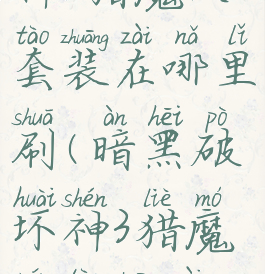 tào zhuāng zài nǎ lǐ
套装在哪里
shuā àn hēi pò
刷(暗黑破
huài shén liè mó
坏神3猎魔